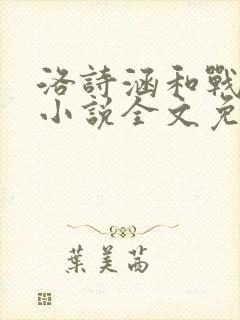 洛詩涵和戰
小說全文免
葉美茜